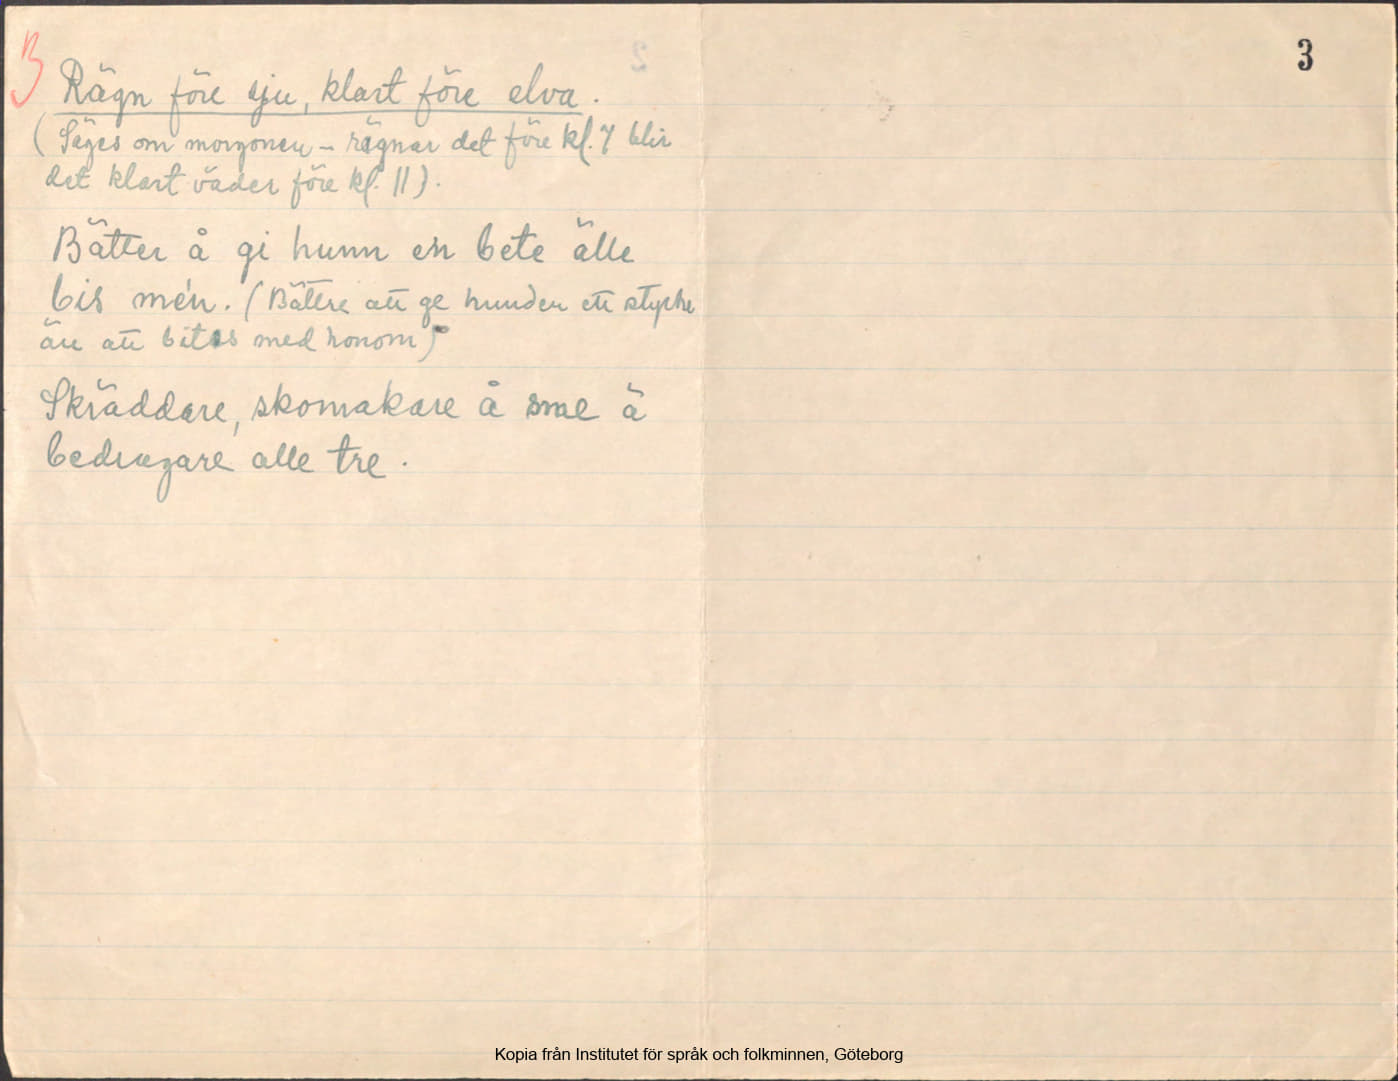 B
3
Rägn före sju, klart före elva.
(Säges om morgonen – rägnar det före kl. 7 blir
det klart väder före kl. 11).
Bätter å gi hunn en bete älle
bis mén. (Bättre att ge hunden ett stycke
än att bitas med honom)
Skräddare, skomakare å sme ä
bedragare alle tre.
Kopia från Institutet för språk och folkminnen, Göteborg